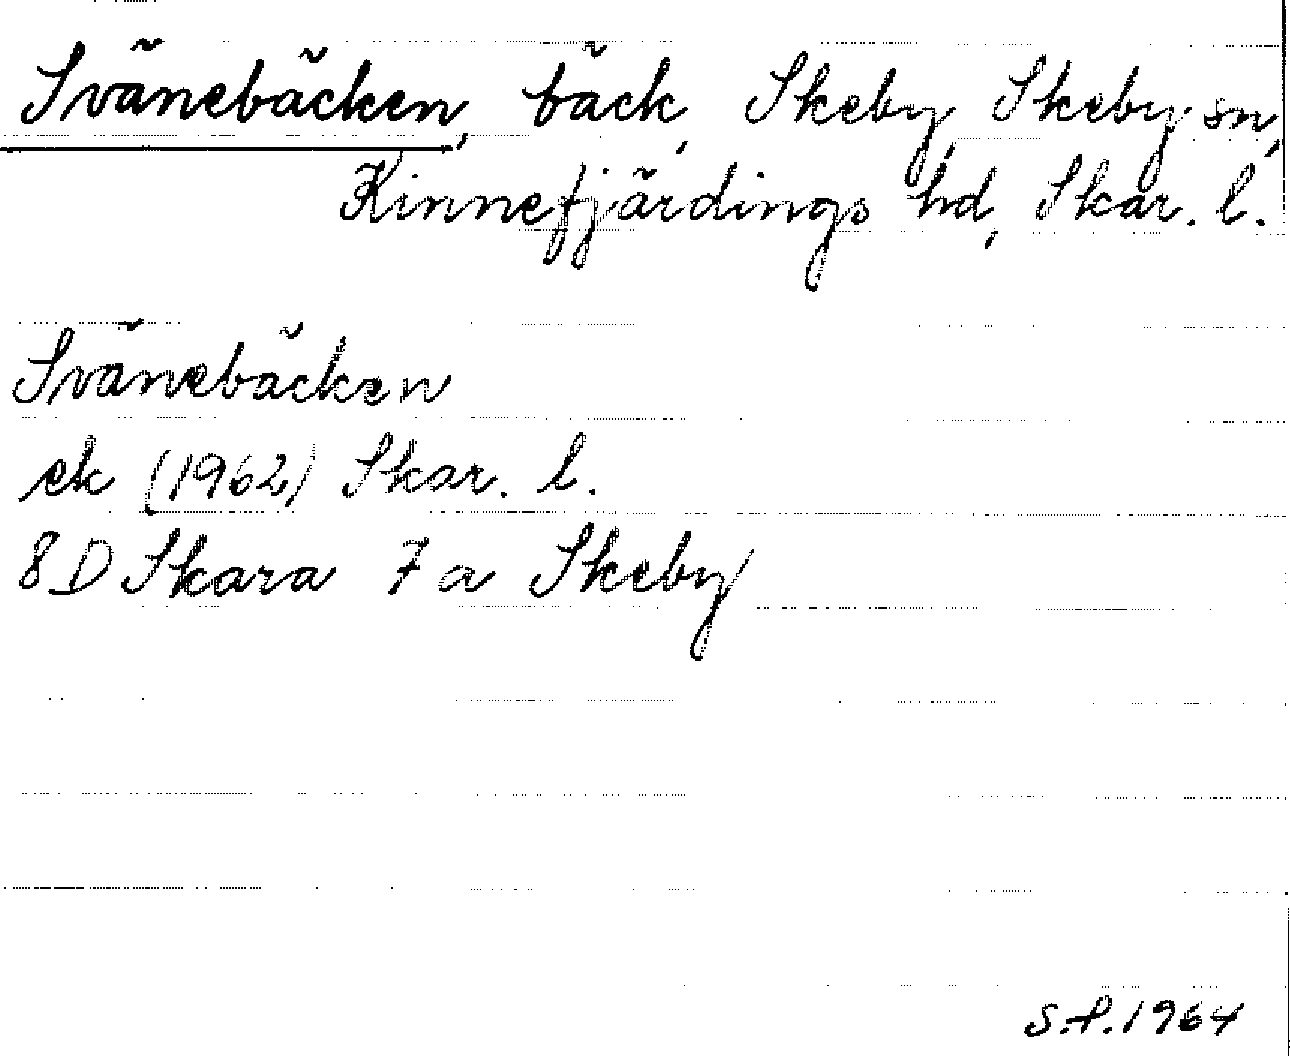 Svänebäcken, bäck, Skeby, Skeby sn,
Kinnefjärdings hd, Skar. l.
Svänebäcken
ek (1962) Skar. l.
8 D Skara 7 a Skeby
S.P. 1964